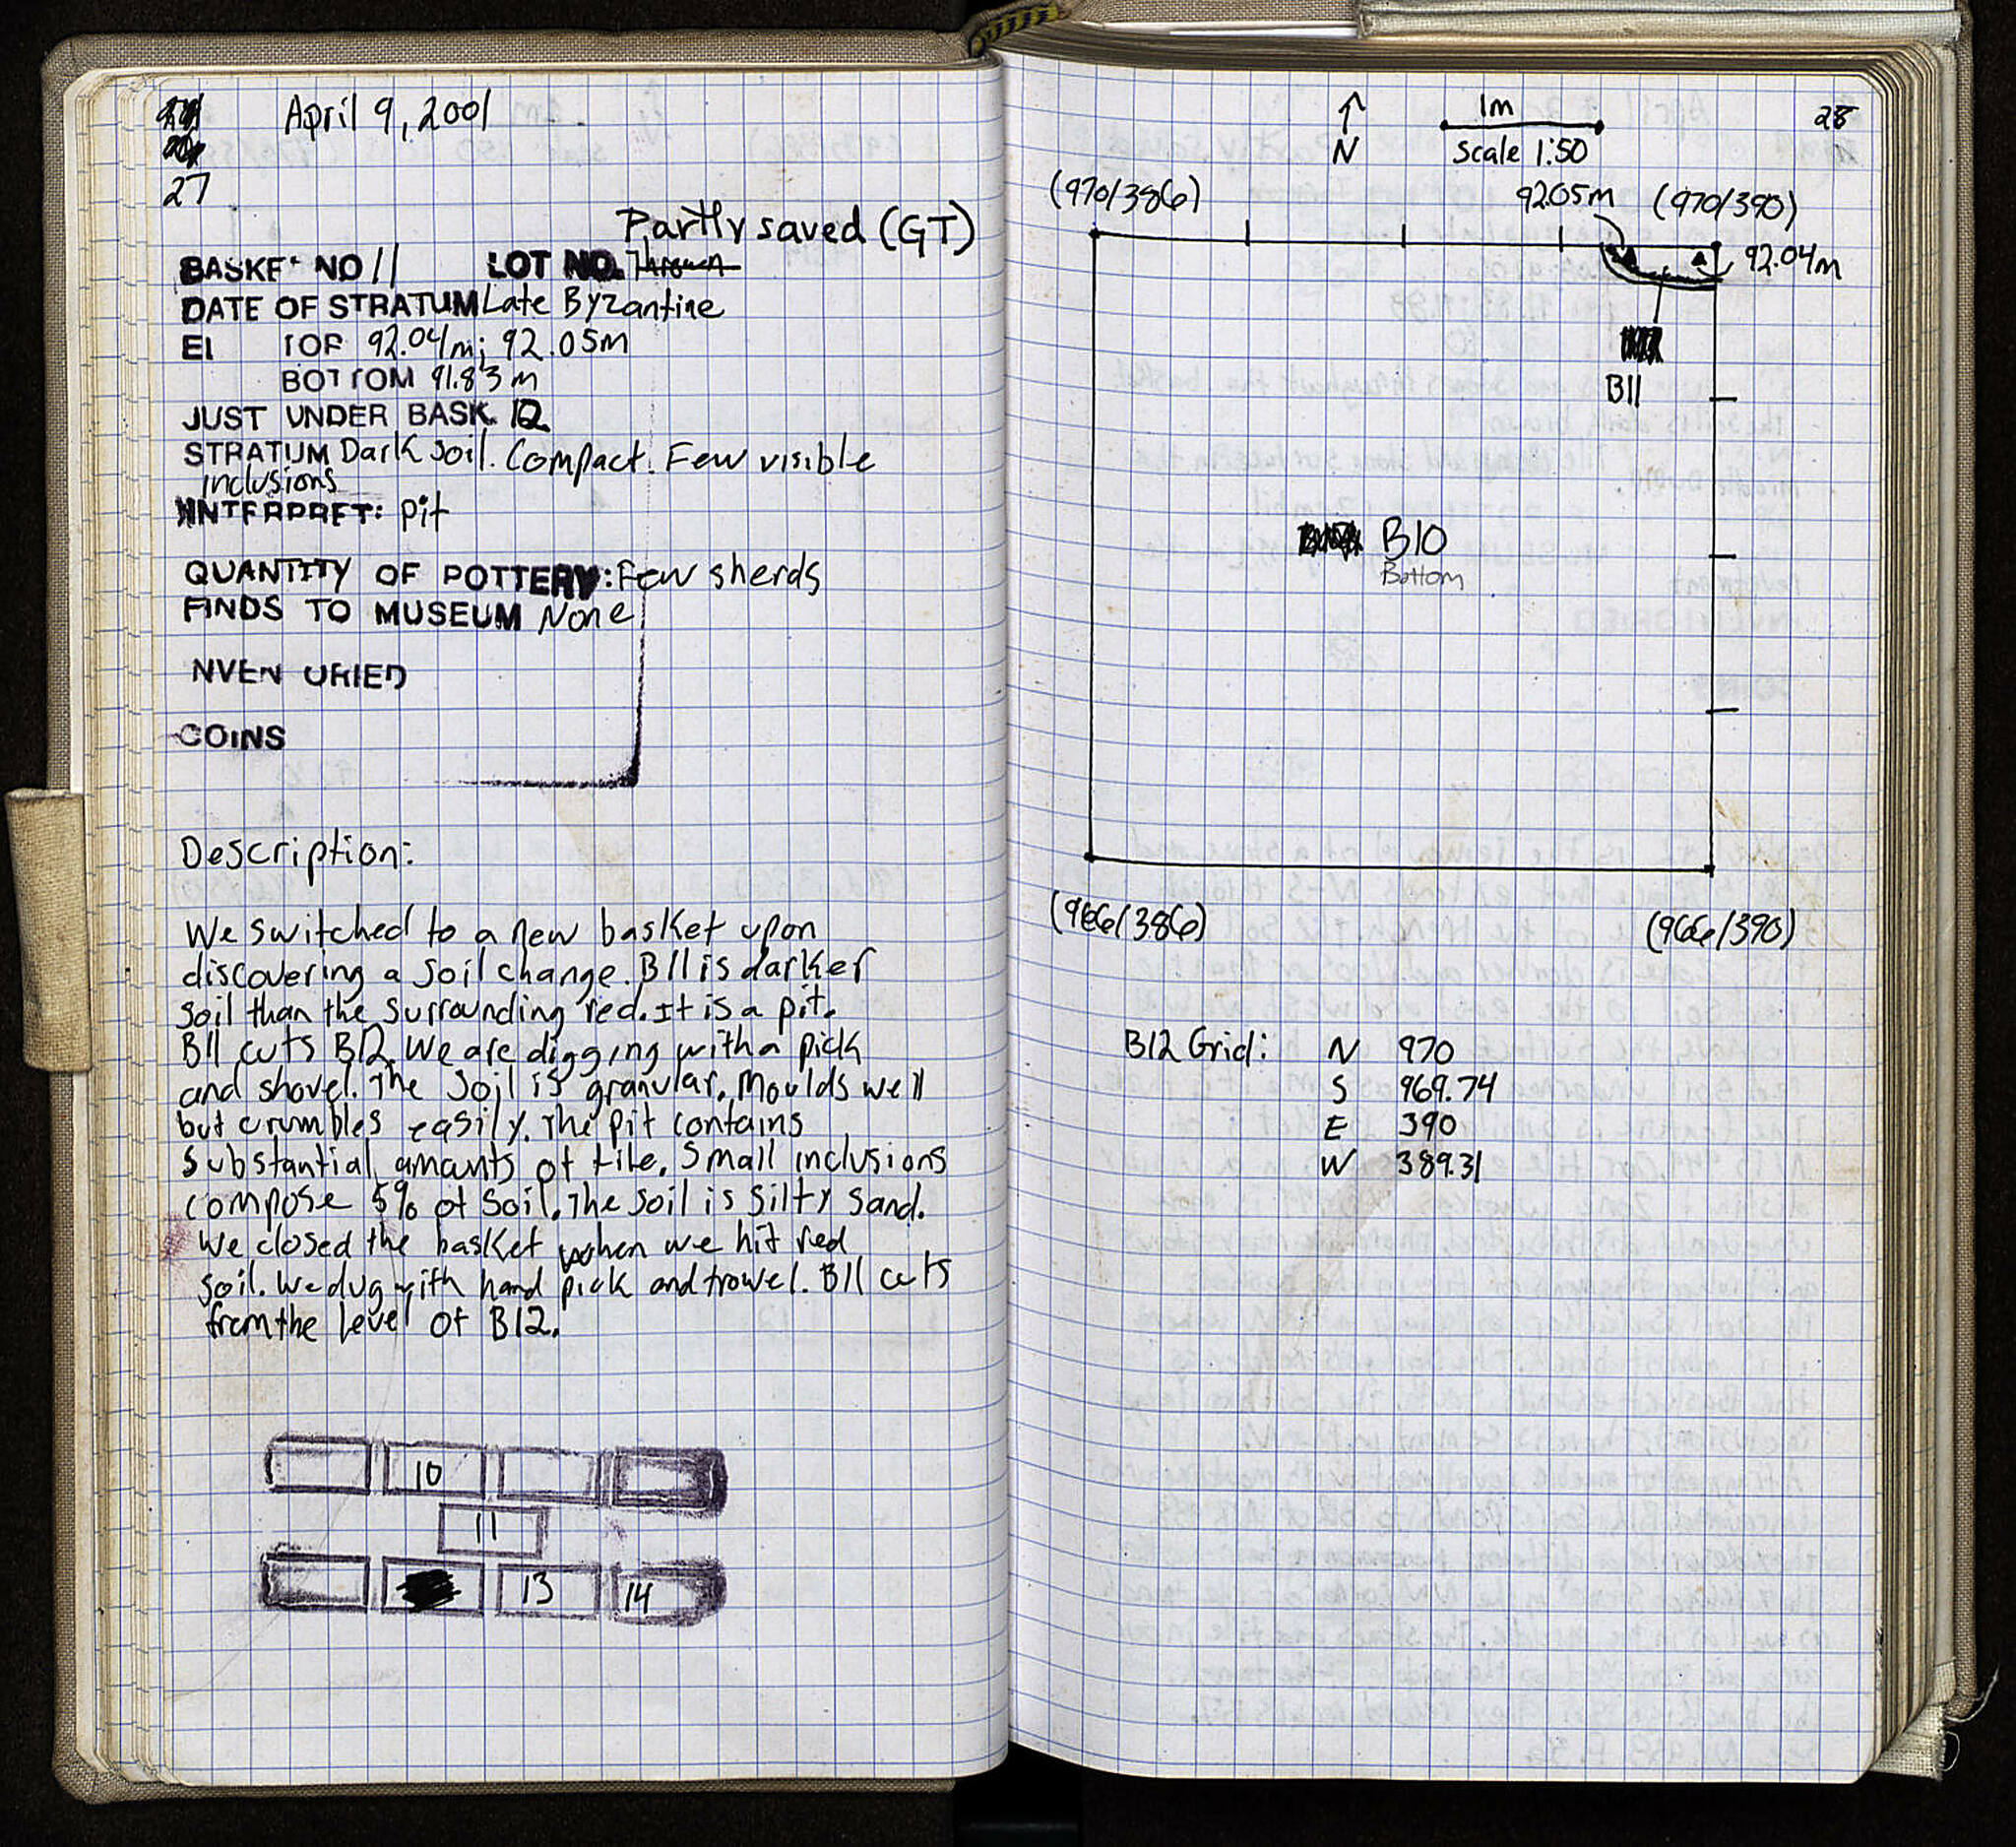 April 9, 2001
27
Partly saved (GT)
BASKET NO 11 LOT NO. Thrown
DATE OF STRATUM Late Byzantine
El TOP 92.04m; 92.05m
BOTTOM 91.83 m
JUST UNDER BASK. 12
STRATUM Dark soil. Compact. Few visible
inclusions
INTERPRET: pit
QUANTITY OF POTTERY: Few sherds
FINDS TO MUSEUM None
NVEN ORIED
COINS
Description:
We switched to a new basket upon
discovering a soil change. B11 is darker
soil than the surrounding red. It is a pit.
B11 cuts B12. We are digging with a pick
and shovel. The soil is granular. Moulds well
but crumbles easily. The pit contains
substantial amants of tile. Small inclusions
compose 5% of soil. The soil is silty sand.
We closed the basket when we hit red
soil. We dug with hand pick and trowel. B11 cuts
from the level of B12.
10
11
13 14
28
1m
N scale 1:50
(970/386) 92.05m (970/390)
92.04m
B11
B10
Bottom
(966/386) (966/390)
B12 Grid: N 970
S 969.74
E 390
W 389.31